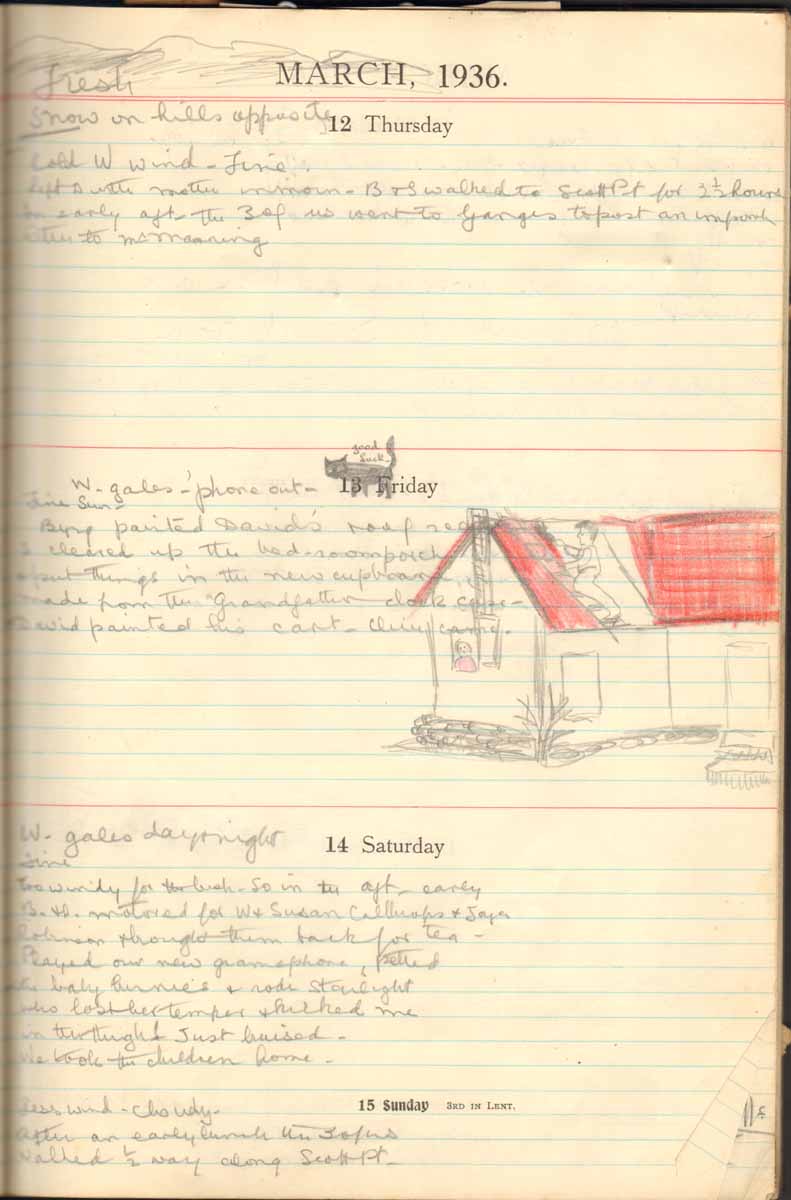 MARCH, 1936.
fresh
Snow on hills opposite
12 Thursday
Cold W wind - Fine.
Left D with mother in morn - B & I walked to Scott Pt for 2½ hours
early aft - the 3 of us went to Ganges to post an import
to
good
luck
13 Friday
W. gales - 'phone out -
Fine Sun -
Byng painted David's roof red
I cleared up the bed-room porch
put things in the new cupboard
made from the "Grandfather clock case -
David painted his cart - came.
W. gales day & night
14 Saturday
Fine
Too windy for the bush - So in the aft - early
B. & D. motored for W & Susan &
& brought them back for tea -
Played our new gramophone, petted
the baby bunnies & rode Starlight
who lost her temper & kicked me
in the thigh! Just bruised -
We took the children home -
15 Sunday 3RD IN LENT.
Less wind - cloudy -
After an early lunch the 3 of us
walked ½ way along Scott Pt -